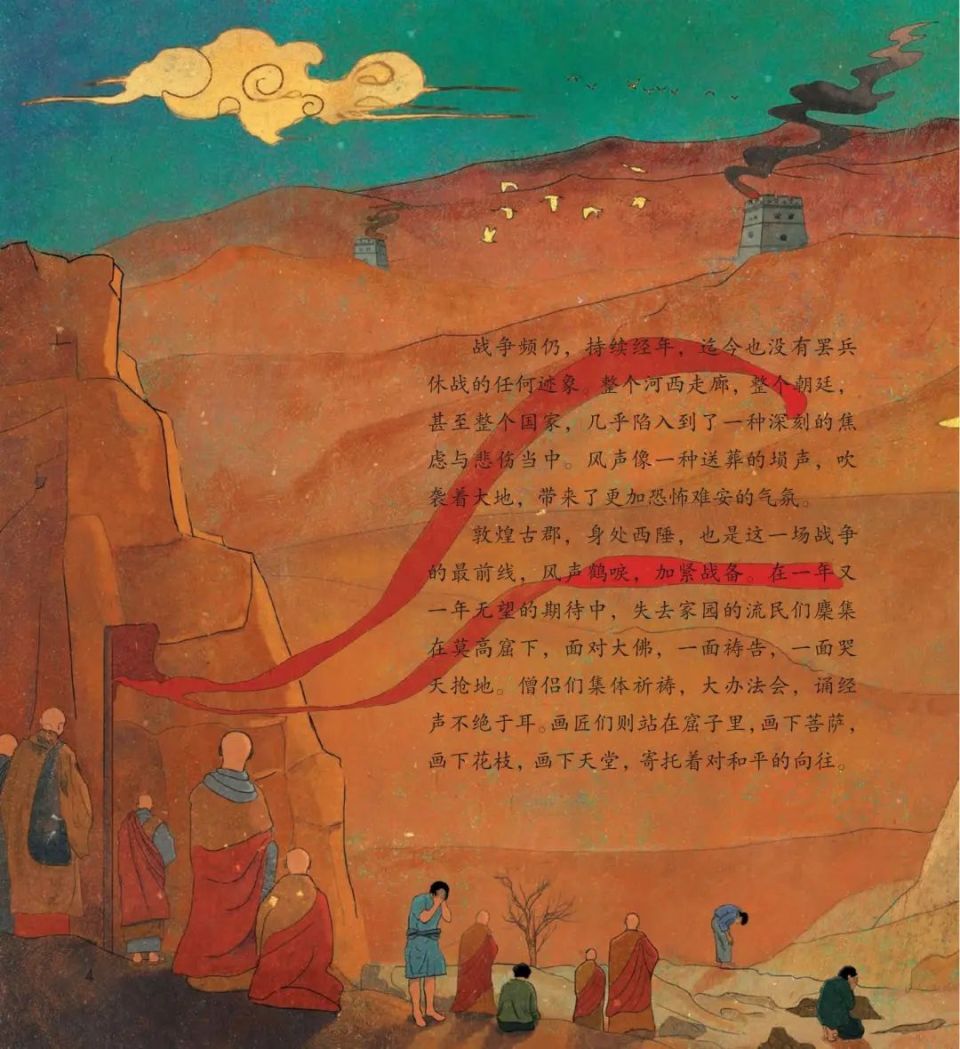 战争频仍，持续经年，迄今也没有罢兵
休战的任何迹象。整个河西走廊，整个朝廷，
甚至整个国家，几乎陷入到了一种深刻的焦
虑与悲伤当中。风声像一种送葬的埙声，吹
袭着大地，带来了更加恐怖难安的气氛。
敦煌古郡，身处西陲，也是这一场战争
的最前线，风声鹤唳，加紧战备。在一年又
一年无望的期待中，失去家园的流民们麇集
在莫高窟下，面对大佛，一面祷告，一面哭
天抢地。僧侣们集体祈祷，大办法会，诵经
声不绝于耳。画匠们则站在窟子里，画下菩萨，
画下花枝，画下天堂，寄托着对和平的向往。
4